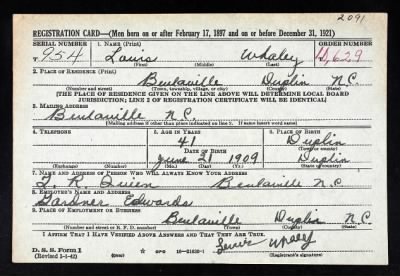 2091
REGISTRATION CARD—(Men born on or after February 17, 1897 and on or before December 31, 1921)
SERIAL NUMBER 1. NAME (Print) ORDER NUMBER
954 Louis Whaley 11,629
(First) (Middle) (Last)
2. PLACE OF RESIDENCE (Print)
Beulaville Duplin N.C.
(Number and street) (Town, township, village, or city) (County) (State)
[THE PLACE OF RESIDENCE GIVEN ON THE LINE ABOVE WILL DETERMINE LOCAL BOARD
JURISDICTION; LINE 2 OF REGISTRATION CERTIFICATE WILL BE IDENTICAL]
3. MAILING ADDRESS
Beulaville N.C.
[Mailing address if other than place indicated on line 2. If same insert word same]
4. TELEPHONE 5. AGE IN YEARS 6. PLACE OF BIRTH
41 Duplin
DATE OF BIRTH (Town or county)
June 21 1909 Duplin
(Exchange) (Number) (Mo.) (Day) (Yr.) (State or country)
7. NAME AND ADDRESS OF PERSON WHO WILL ALWAYS KNOW YOUR ADDRESS
R. Quinn Beulaville N.C.
8. EMPLOYER'S NAME AND ADDRESS
Gardner Edwards
9. PLACE OF EMPLOYMENT OR BUSINESS
Beulaville Duplin N.C.
(Number and street or R. F. D. number) (Town) (County) (State)
I AFFIRM THAT I HAVE VERIFIED ABOVE ANSWERS AND THAT THEY ARE TRUE.
D. S. S. Form 1
(Revised 1-1-42) (over) GPO 16—21630-1 Lewis Whaley
(Registrant's signature)